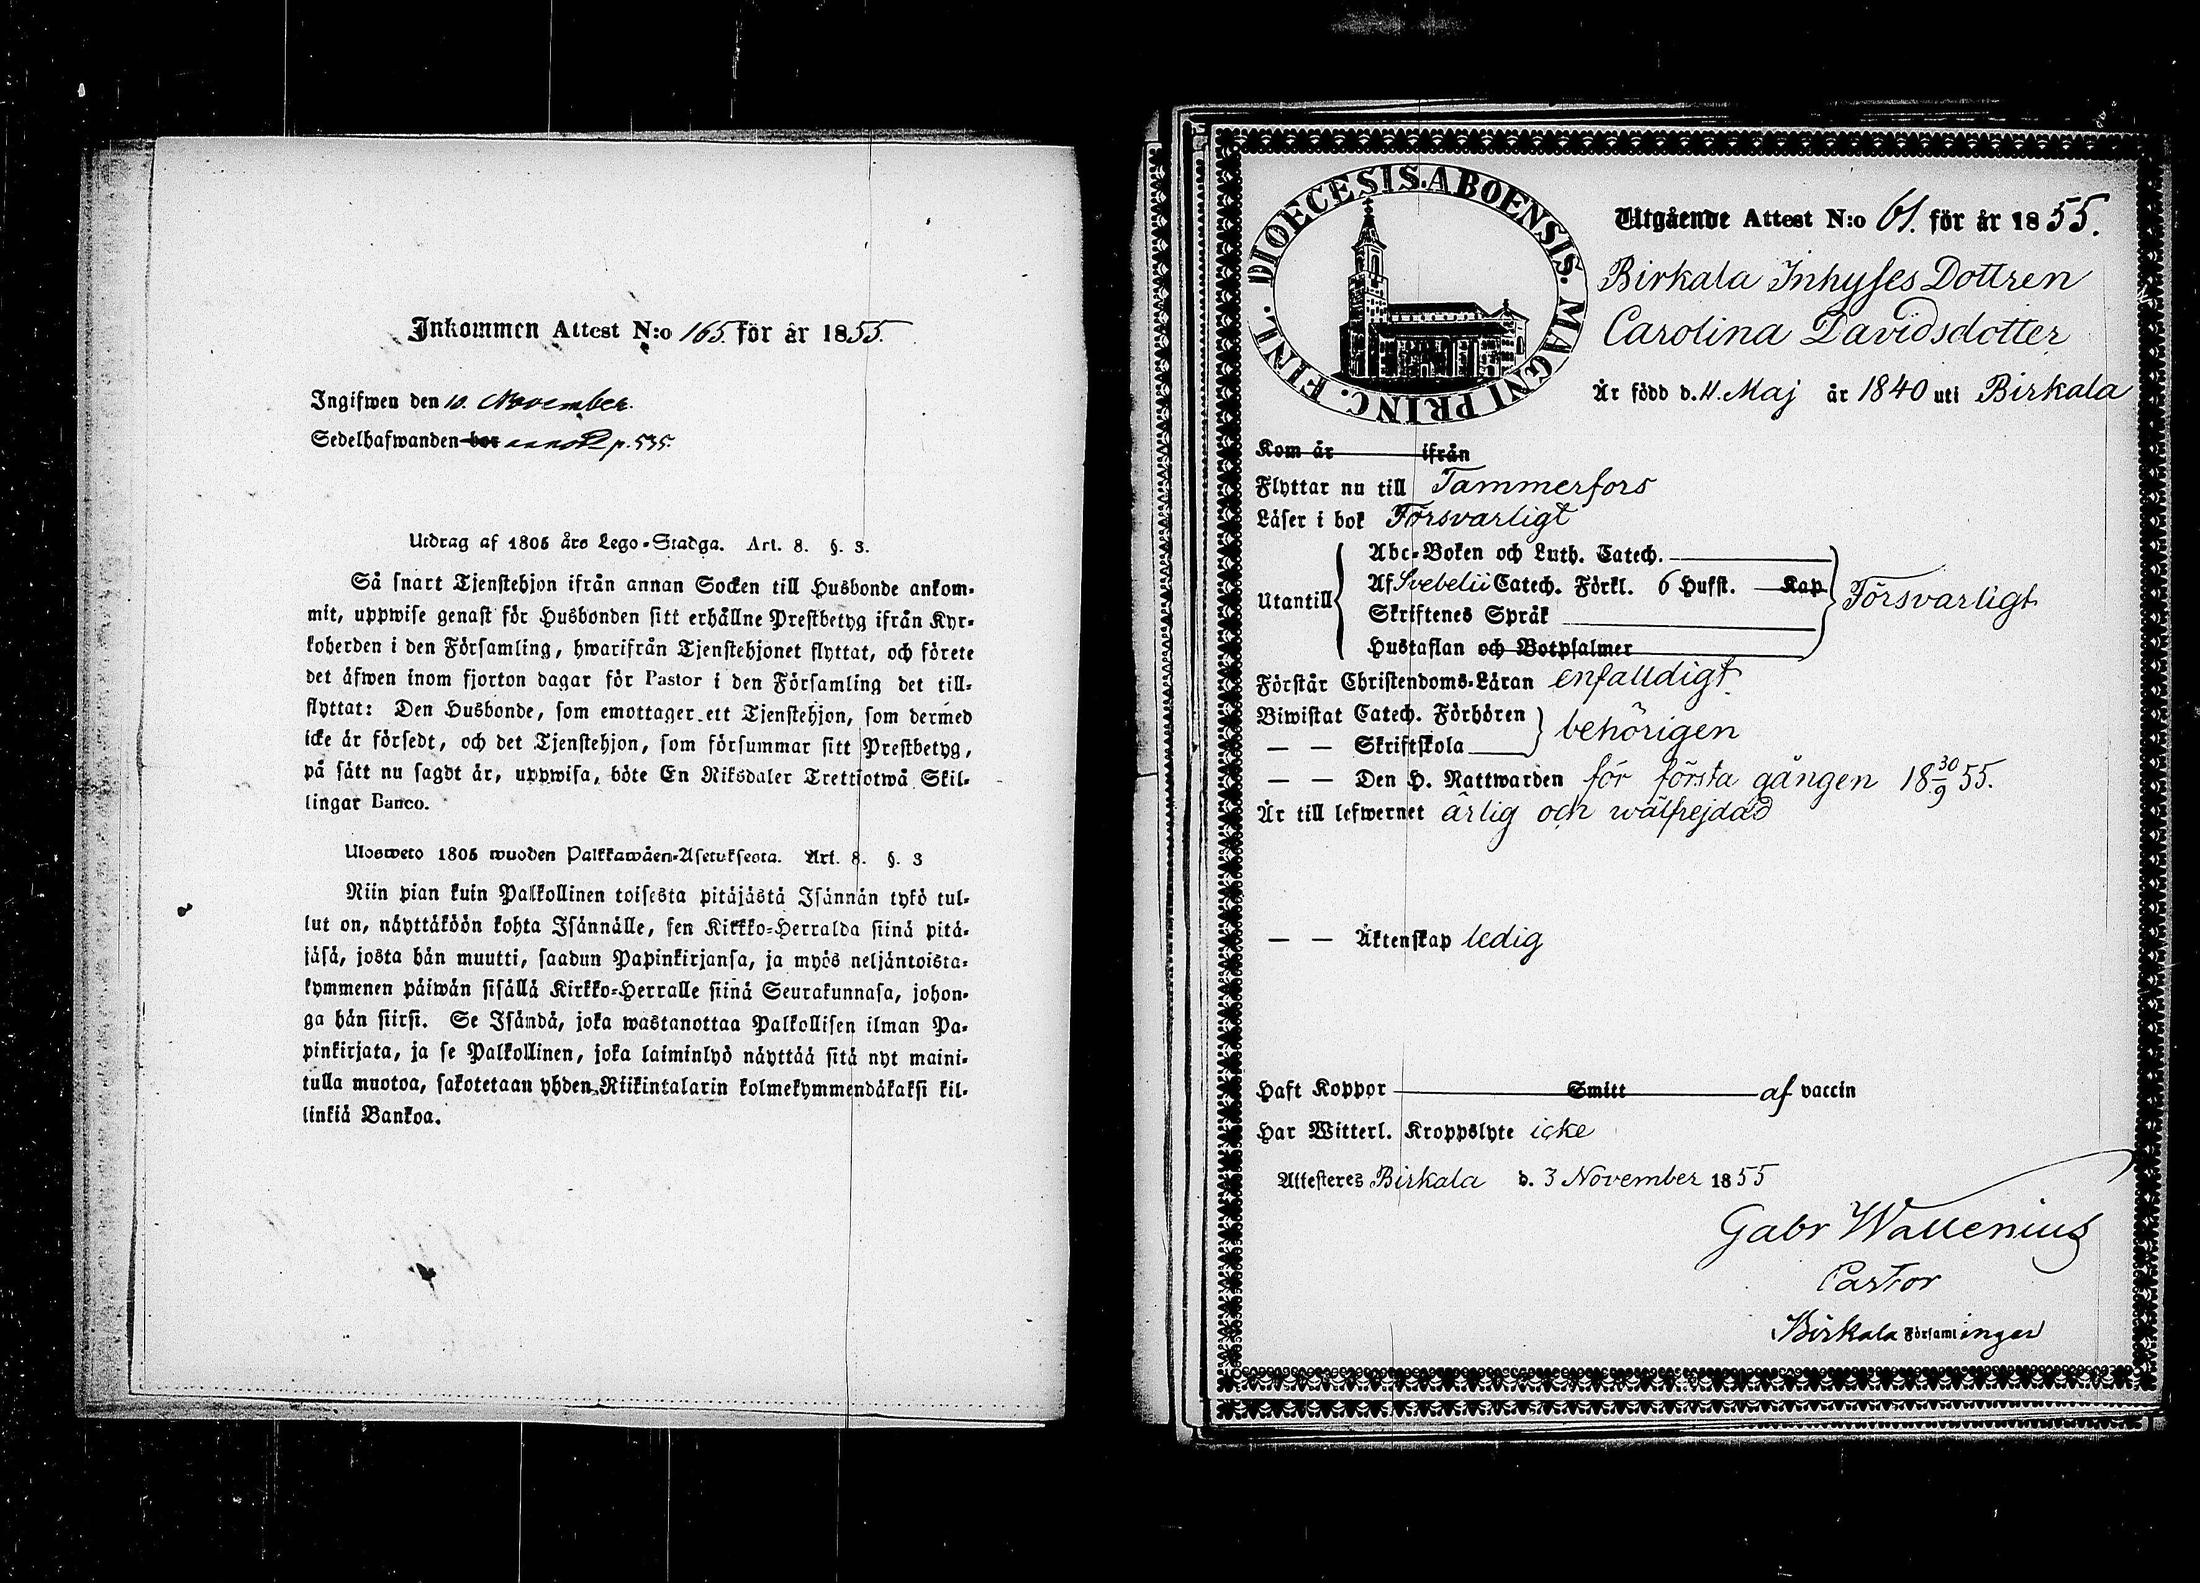 Inkommen Attest N:o 165. för år 1855.
Ingifwen den 10. November.
Sedelhafwanden bor p. 535.
Utdrag af 1805 års Lego-Stadga. Art. 8. §. 3.
Så snart Tjenstehjon ifrån annan Socken till Husbonde ankom-
mit, uppwise genast för Husbonden sitt erhållne Prestbetyg ifrån Kyr-
koherden i den Församling, hwarifrån Tjenstehjonet flyttat, och förete
det äfwen inom fjorton dagar för Pastor i den Församling det till-
flyttat: Den Husbonde, som emottager ett Tjenstehjon, som dermed
icke är försedt, och det Tjenstehjon, som försummar sitt Prestbetyg,
på sätt nu sagdt är, uppwisa, böte En Riksdaler Trettiotwå Skil-
lingar Banco.
Ulosweto 1805 wuoden Palkkawäen-Asetuksesta. Art. 8. §. 3
Niin pian kuin Palkollinen toisesta pitäjästä Isännän tykö tul-
lut on, näyttäköön kohta Isännälle, sen Kirkko-Herralda siinä pitä-
jäsä, josta hän muutti, saadun Papinkirjansa, ja myös neljäntoista-
kymmenen päiwän sisällä Kirkko-Herralle siinä Seurakunnasa, johon-
ga hän siirsi. Se Isändä, joka wastanottaa Palkollisen ilman Pa-
pinkirjata, ja se Palkollinen, joka laiminlyö näyttää sitä nyt maini-
tulla muotoa, sakotetaan yhden Riikintalarin kolmekymmendäkaksi kil-
linkiä Bankoa.
DIOECESIS. ABOENSIS. MAGNI PRINC. FINL.
Utgående Attest N:o 61. för år 1855.
Birkala Inhyses Dottren
Carolina Davidsdotter
Är född d. 11. Maj år 1840 uti Birkala
Kom år ifrån
Flyttar nu till Tammerfors
Läser i bok Försvarligt
Utantill
Abc-Boken och Luth. Catech.
Af Svebelii Catech. Förkl. 6 Hufst. Kap
Skriftenes Språk
Hustaflan och Botpsalmer
Försvarligt
Förstår Christendoms-Läran enfalldigt
Biwistat Catech. Förhören
— — Skriftskola
behörigen
— — Den H. Nattwarden för första gången 18 30/9 55.
Är till lefwernet ärlig och wälfrejdad
— — Äktenskap ledig
Haft Koppor Smitt af vaccin
Har Witterl. Kroppslyte icke
Attesteres Birkala d. 3 November 1855
Gabr Wallenius
Pastor
Birkala Församlingar